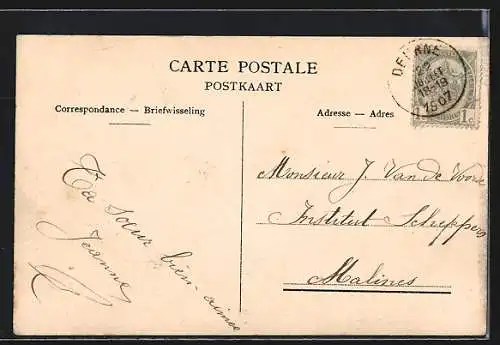 CARTE POSTALE
POSTKAART
Correspondance — Briefwisseling
Adresse — Adres
DEURNE
1907
1c
Ta sœur bien-aimée
Jeanne
Monsieur J. Van de Voorde
Institut Scheppers
Malines